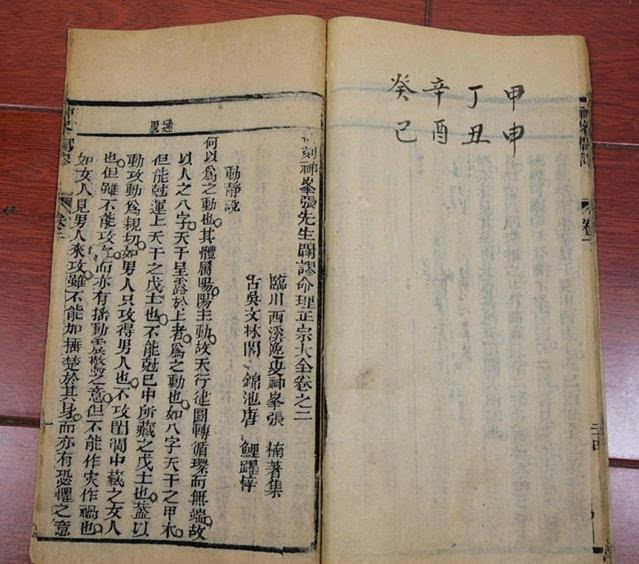 甲申
丁丑
辛酉
癸巳
刻神峯張先生闢謬命理正宗大全卷之
臨川西溪逸叟神峯張 楠著集
古吳文林閣 錦池唐 鯉躍梓
動靜說
何以爲之動也其體屬陽陽主動故天行健圓轉循環而無端故
以人之八字天干呈露於上者爲之動也如八字天干之甲木
但能尅運上天干之戊土也不能尅巳中所藏之戊土也葢以
動攻動爲親切如男人只攻得男人也不攻閨閫中藏之女人
也但雖不能攻之而亦有搖動震驚之意但不能作灾作禍也
如女人見男人來攻雖不能加捶楚於其身而亦有恐懼之意